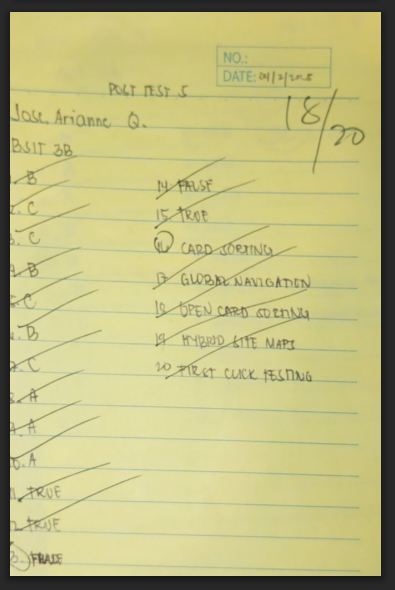 NO.:
DATE: 04/2/2025
POST TEST 5
18/20
Jose, Arianne Q.
BSIT 3B
1. B
2. C
3. C
4. B
5. C
6. B
7. C
8. A
9. A
10. A
11. TRUE
12. TRUE
13.
14 FALSE
15. TRUE
16 CARD SORTING
17 GLOBAL NAVIGATION
18 OPEN CARD SORTING
19 HYBRID SITE MAPS
20 FIRST CLICK TESTING